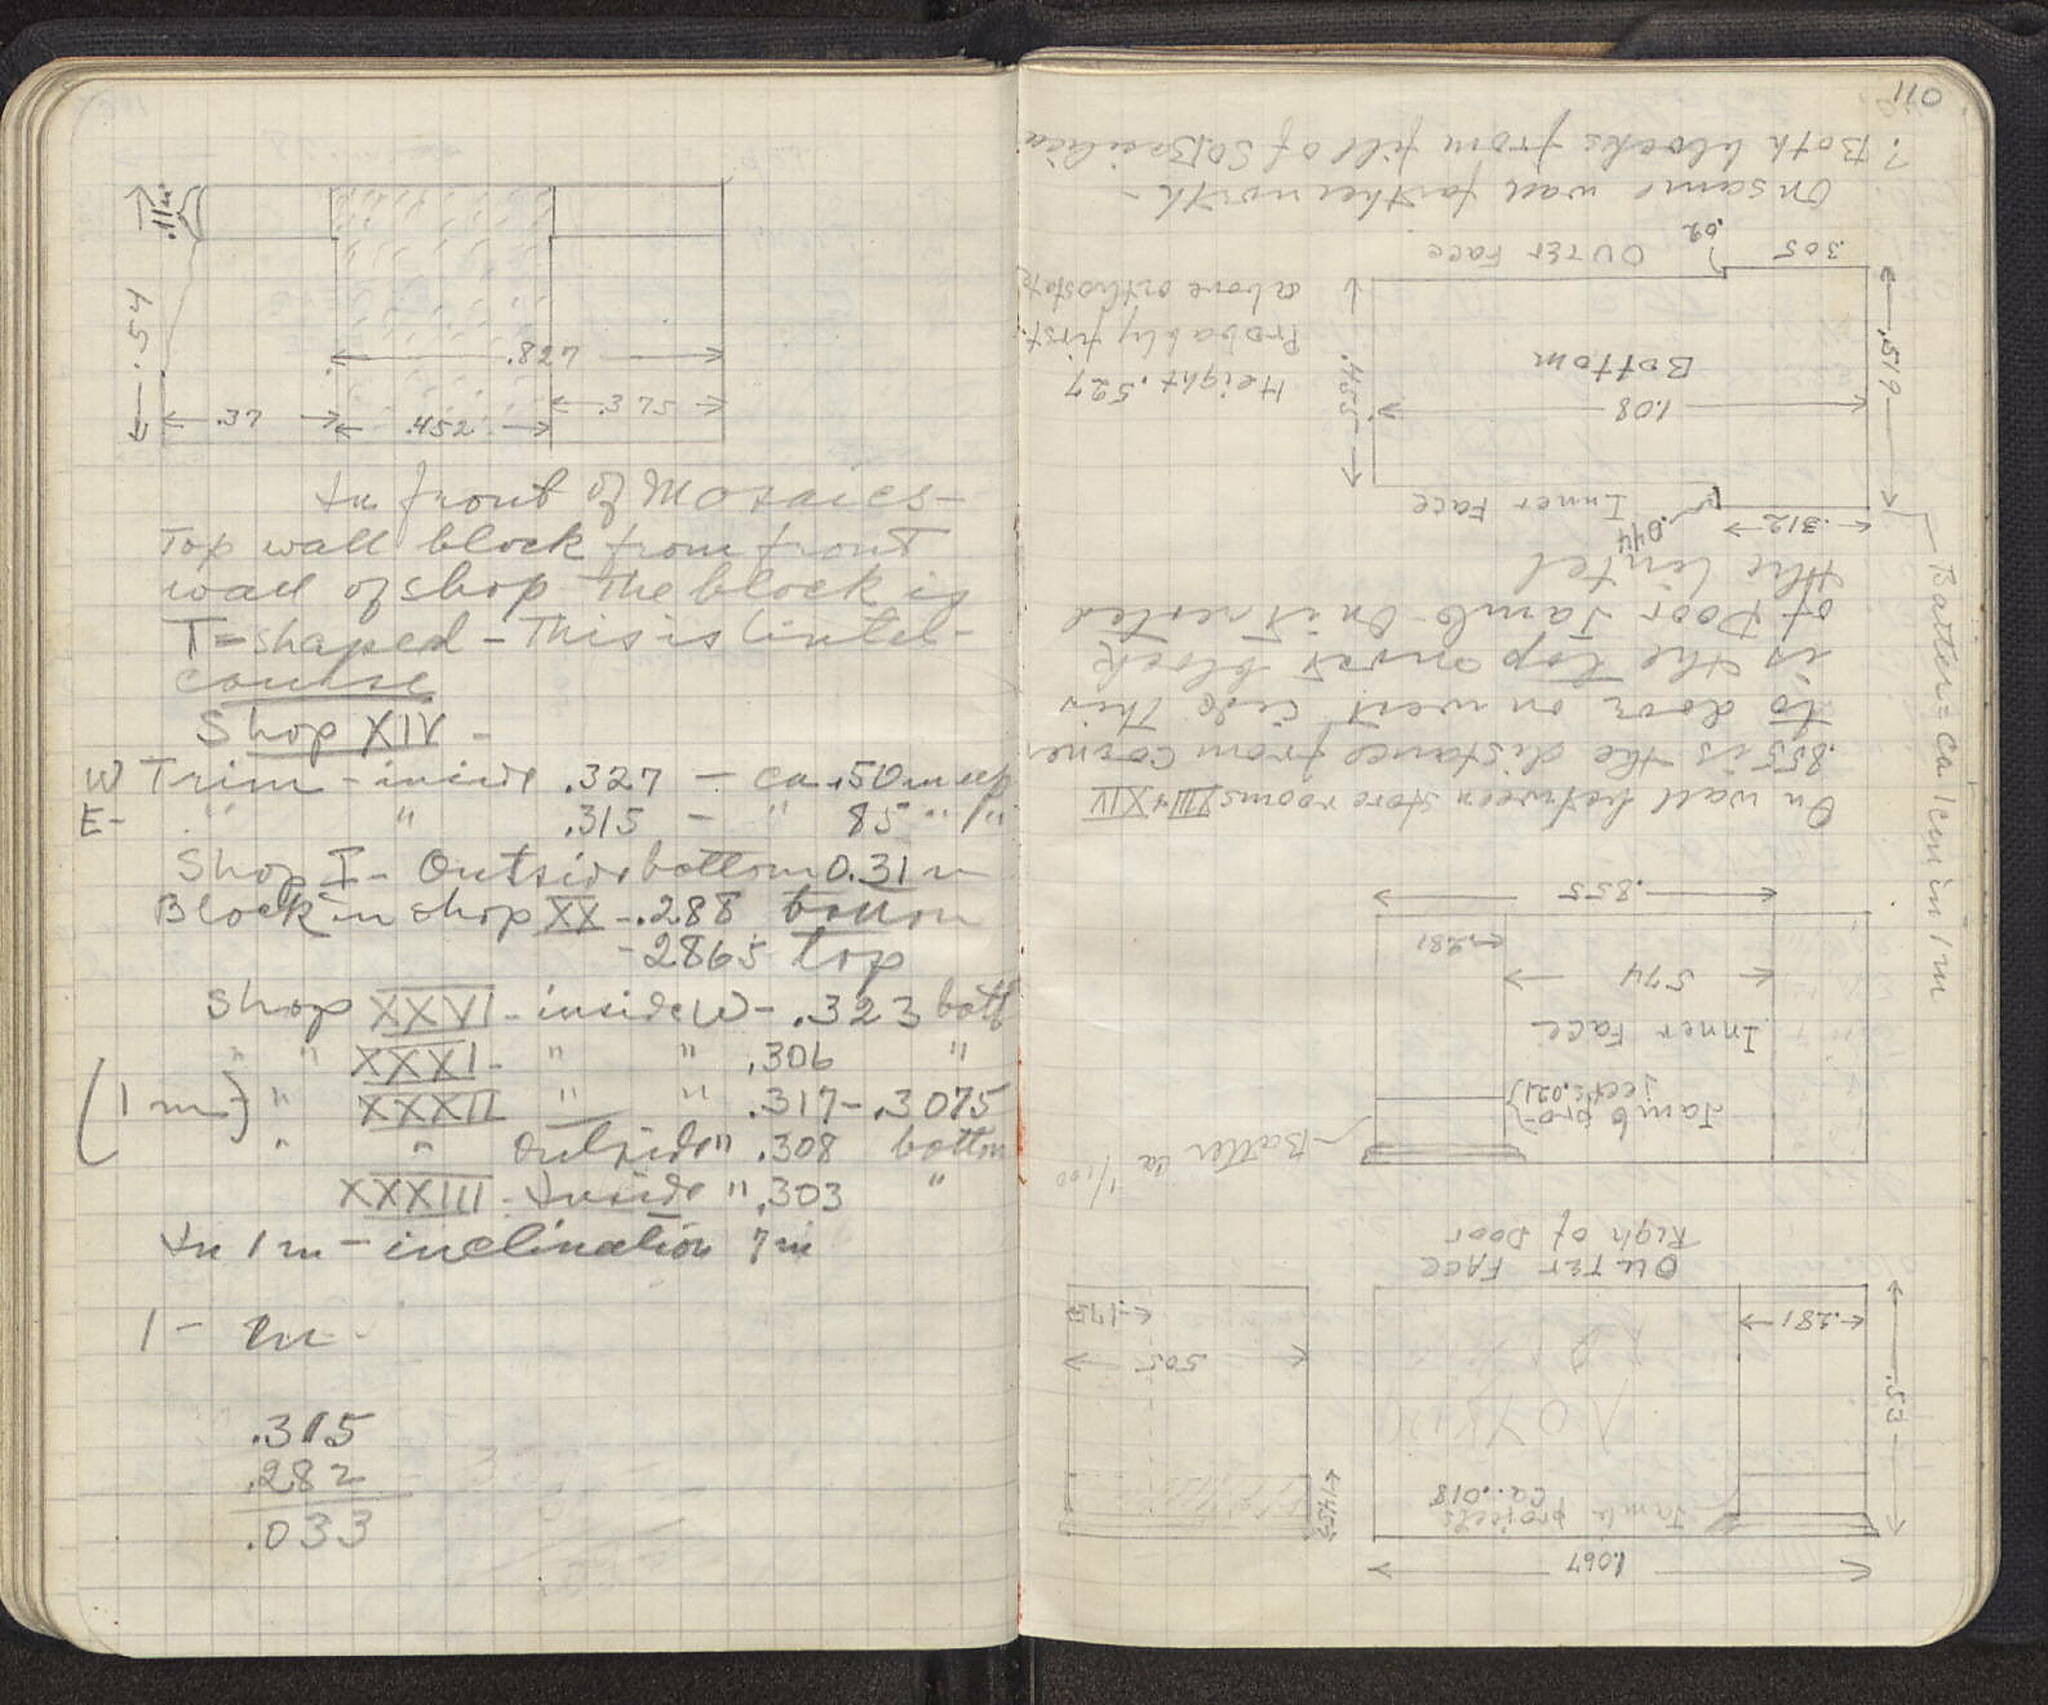 .11
.54
.827
.375
.37
.452
In front of Mosaics-
Top wall block from front
wall of shop The block is
T=shaped - This is lintel-
course
Shop XIV -
W Trim - inside .327 - ca .50 m up
E- " " .315 - " 85 " "
Shop I - Outside bottom 0.31 m
Block in shop XX - .288 bottom
- 2865 top
Shop XXVI - inside W - .323 bott
" " XXXI - " " .306 "
(1 m) " XXXII " " .317 - .3075
" " outside " .308 bottom
XXXIII - Inside " .303 "
In 1 m - inclination 7 m
1 - m
.315
.282
.033
1.067
.53
Jamb projects
ca. .018
.281
.1457
.505
.175
OUTER FACE
Righ of Door
Batter ca 1/100
Jamb pro-
jects .021
Inner Face
574
.281
.855
On wall between store rooms XIII + XIV
.855 is the distance from corner
to door on west side This
is the top onset block
of Door Jamb On it rested
the lintel
.312
.044
Inner Face
1.08
Bottom
.519
.455
Height .527
Probably first
above orthostate
.305
.02
OUTER Face
On same wall farther north -
? Both blocks from fill of So. Basilica
Batter = ca 1 cm in 1 m
110